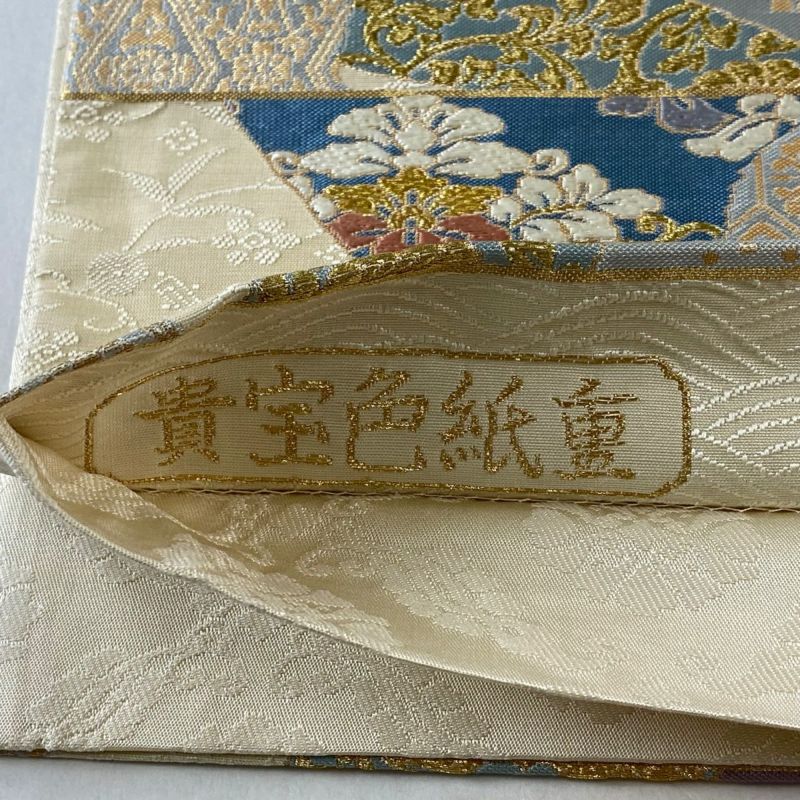 貴宝色紙重